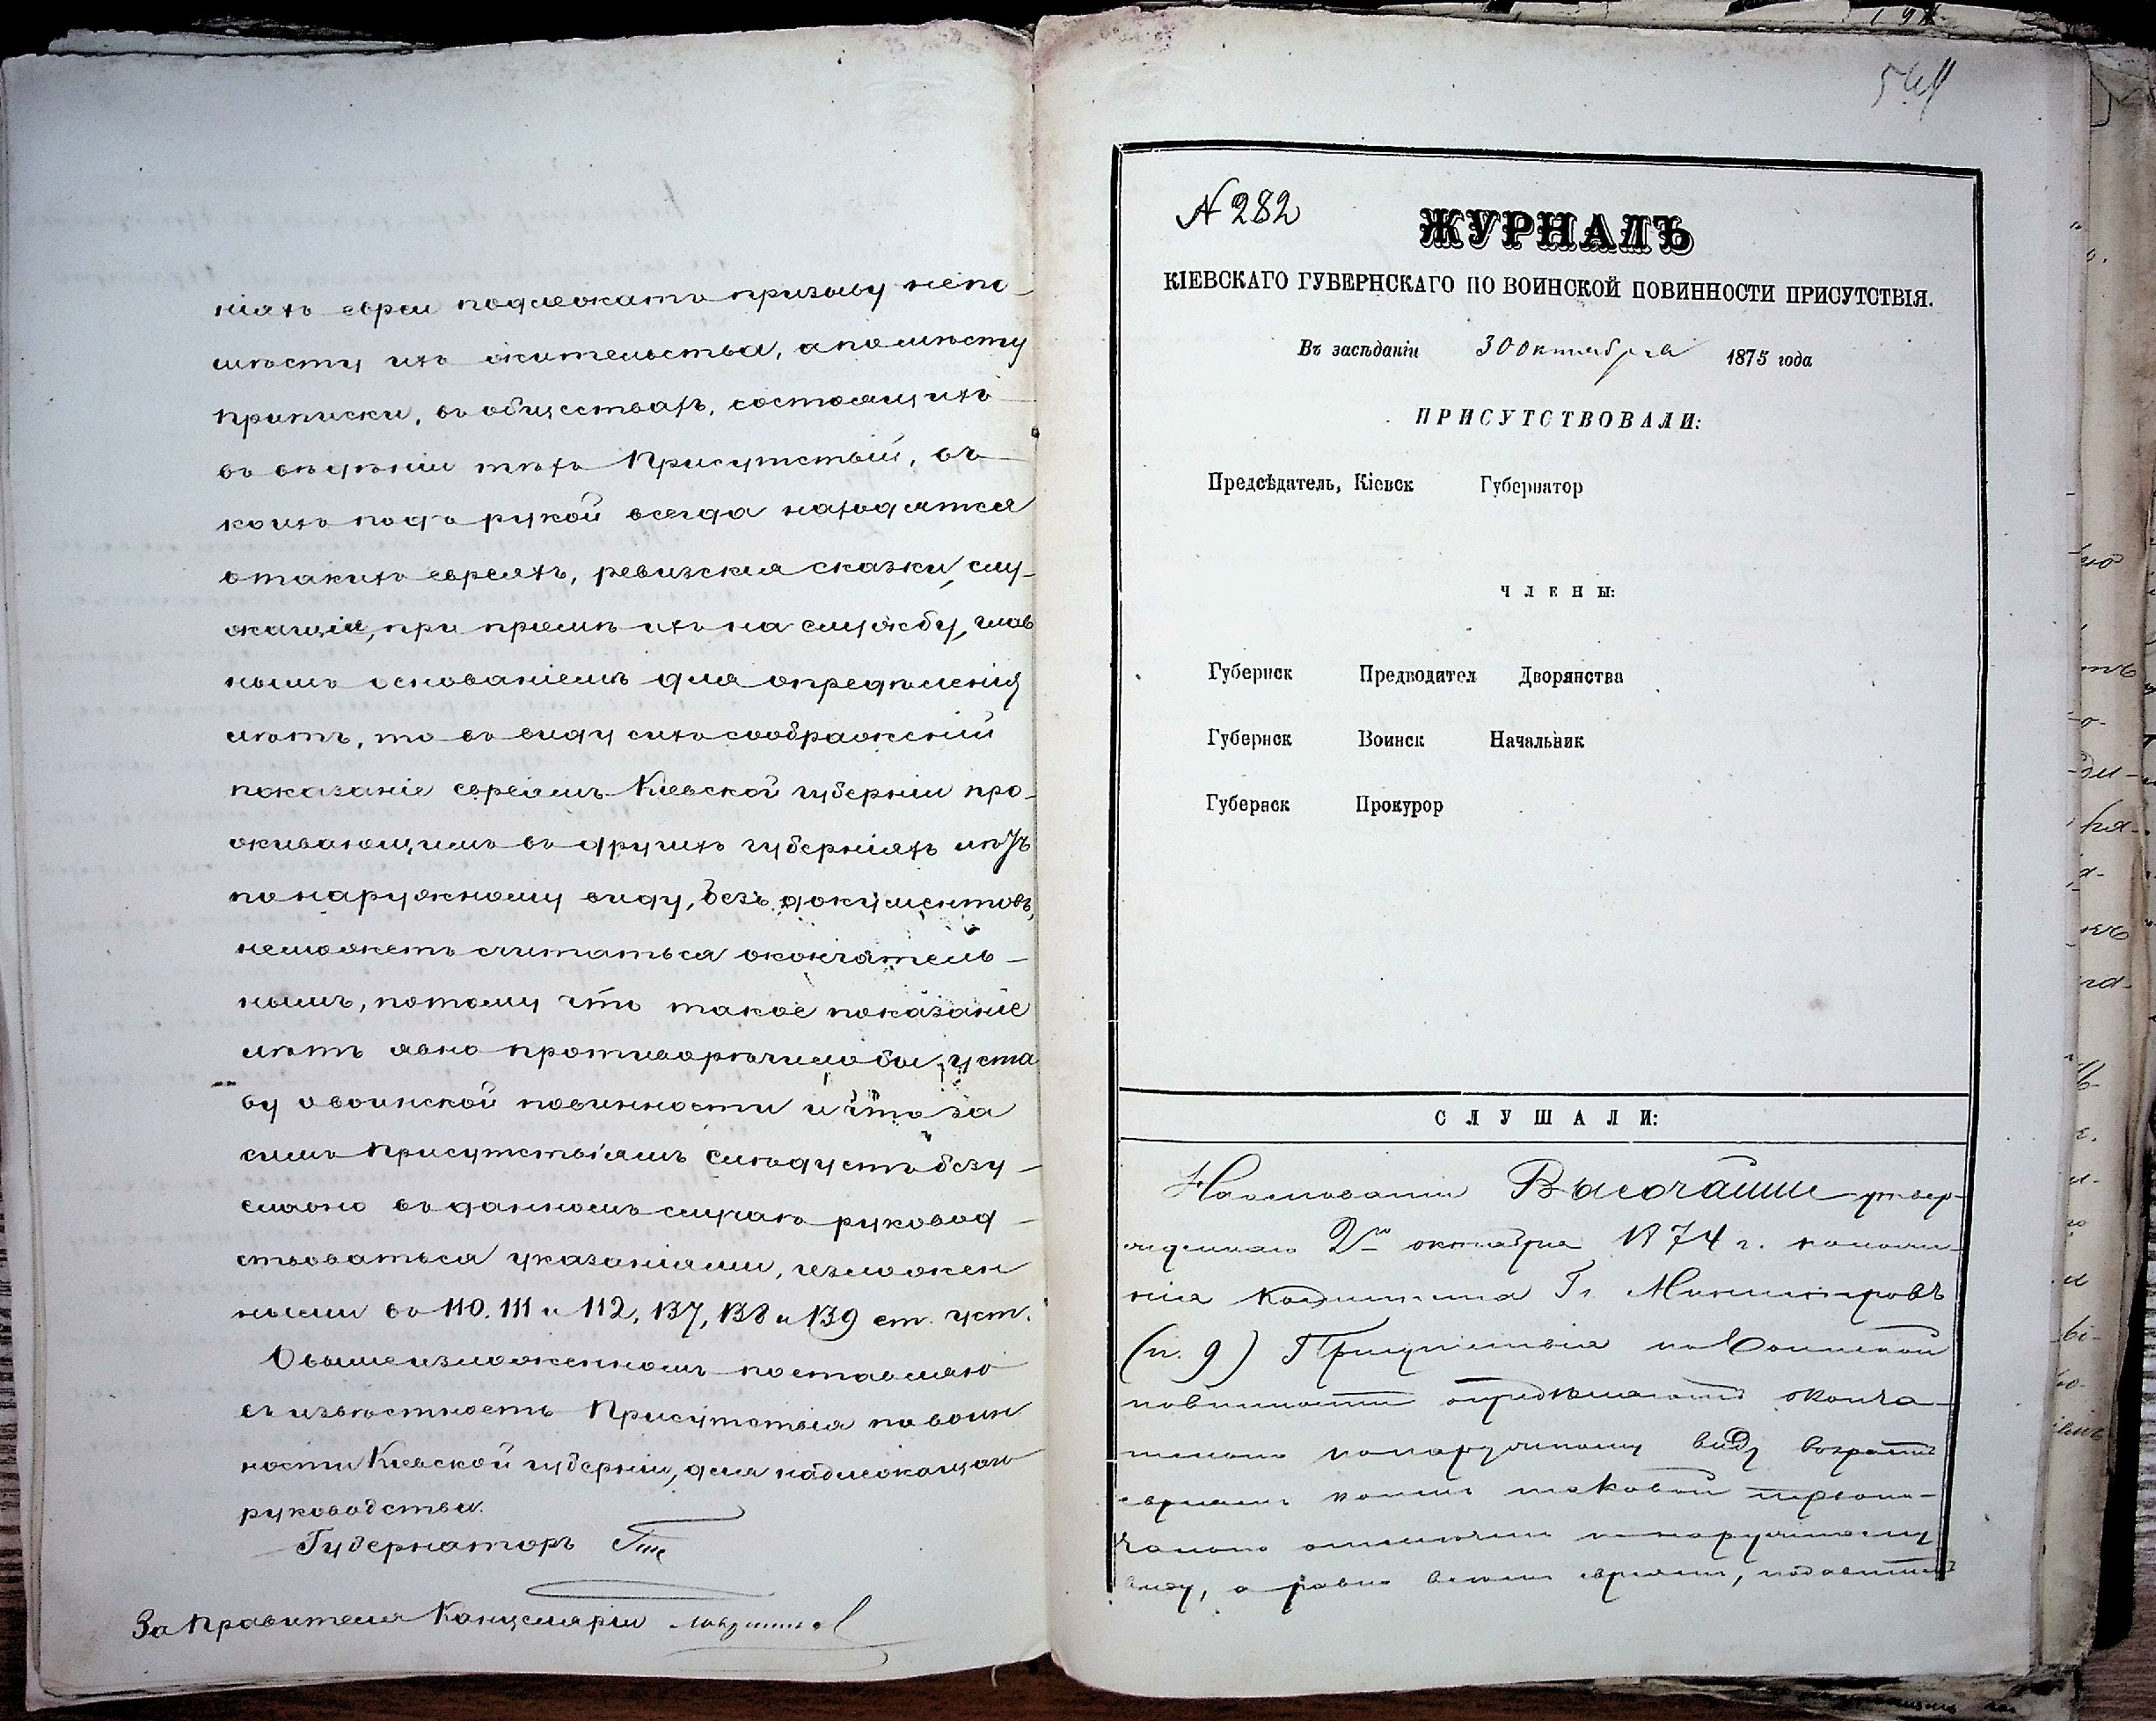 ніяхъ евреи подлежатъ призыву непо
мѣсту ихъ жительства, а по мѣсту
приписки, въ обществахъ, состоящихъ
въ вѣдѣніи тѣхъ Присутствій, въ
коихъ подъ рукой всегда находятся
о такихъ евреяхъ, ревизскія сказки, слу-
жащія, при пріемѣ ихъ на службу, глав
нымъ основаніемъ для опредѣленія
лѣтъ, то въ виду сихъ соображеній
показаніе евреямъ Кіевской губерніи про-
живающимъ въ другихъ губерніяхъ лѣтъ
по наружному виду, безъ документовъ,
неможетъ считаться окончатель-
нымъ, потому что такое показаніе
лѣтъ явно противорѣчило бы уста
ву о воинской повинности и что за
симъ Присутствіямъ слѣдуетъ безу-
словно въ данномъ случаѣ руковод-
ствоваться указаніями, изложен
ными въ 110. 111 и 112, 137, 138 и 139 ст. уст.
О вышеизложенномъ поставляю
въ извѣстность Присутствія по воин
ности Кіевской губерніи, для надлежащаго
руководства.
Губернаторъ
За Правителя Канцеляріи
N 282
ЖУРНАЛЪ
КІЕВСКАГО ГУБЕРНСКАГО ПО ВОИНСКОЙ ПОВИННОСТИ ПРИСУТСТВІЯ.
Въ засѣданіи 30 октября 1875 года
ПРИСУТСТВОВАЛИ:
Предсѣдатель, Кіевск Губернатор
ЧЛЕНЫ:
Губернск Предводител Дворянства
Губернск Воинск Начальник
Губернск Прокурор
СЛУШАЛИ:
На основаніи Высочайше утвер-
жденнаго 2го октября 1874 г. положе-
нія Комитета Гг. Министровъ
(п. 9) Присутствія по Воинской
повинности опредѣляютъ оконча-
тельно по наружному виду возрастъ
евреямъ коимъ таковой первона-
чально опредѣленъ по наружному
виду, а равно всѣмъ евреямъ,